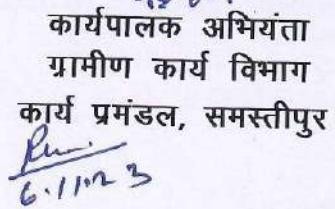 कार्यपालक अभियंता
ग्रामीण कार्य विभाग
कार्य प्रमंडल, समस्तीपुर
6.11.23